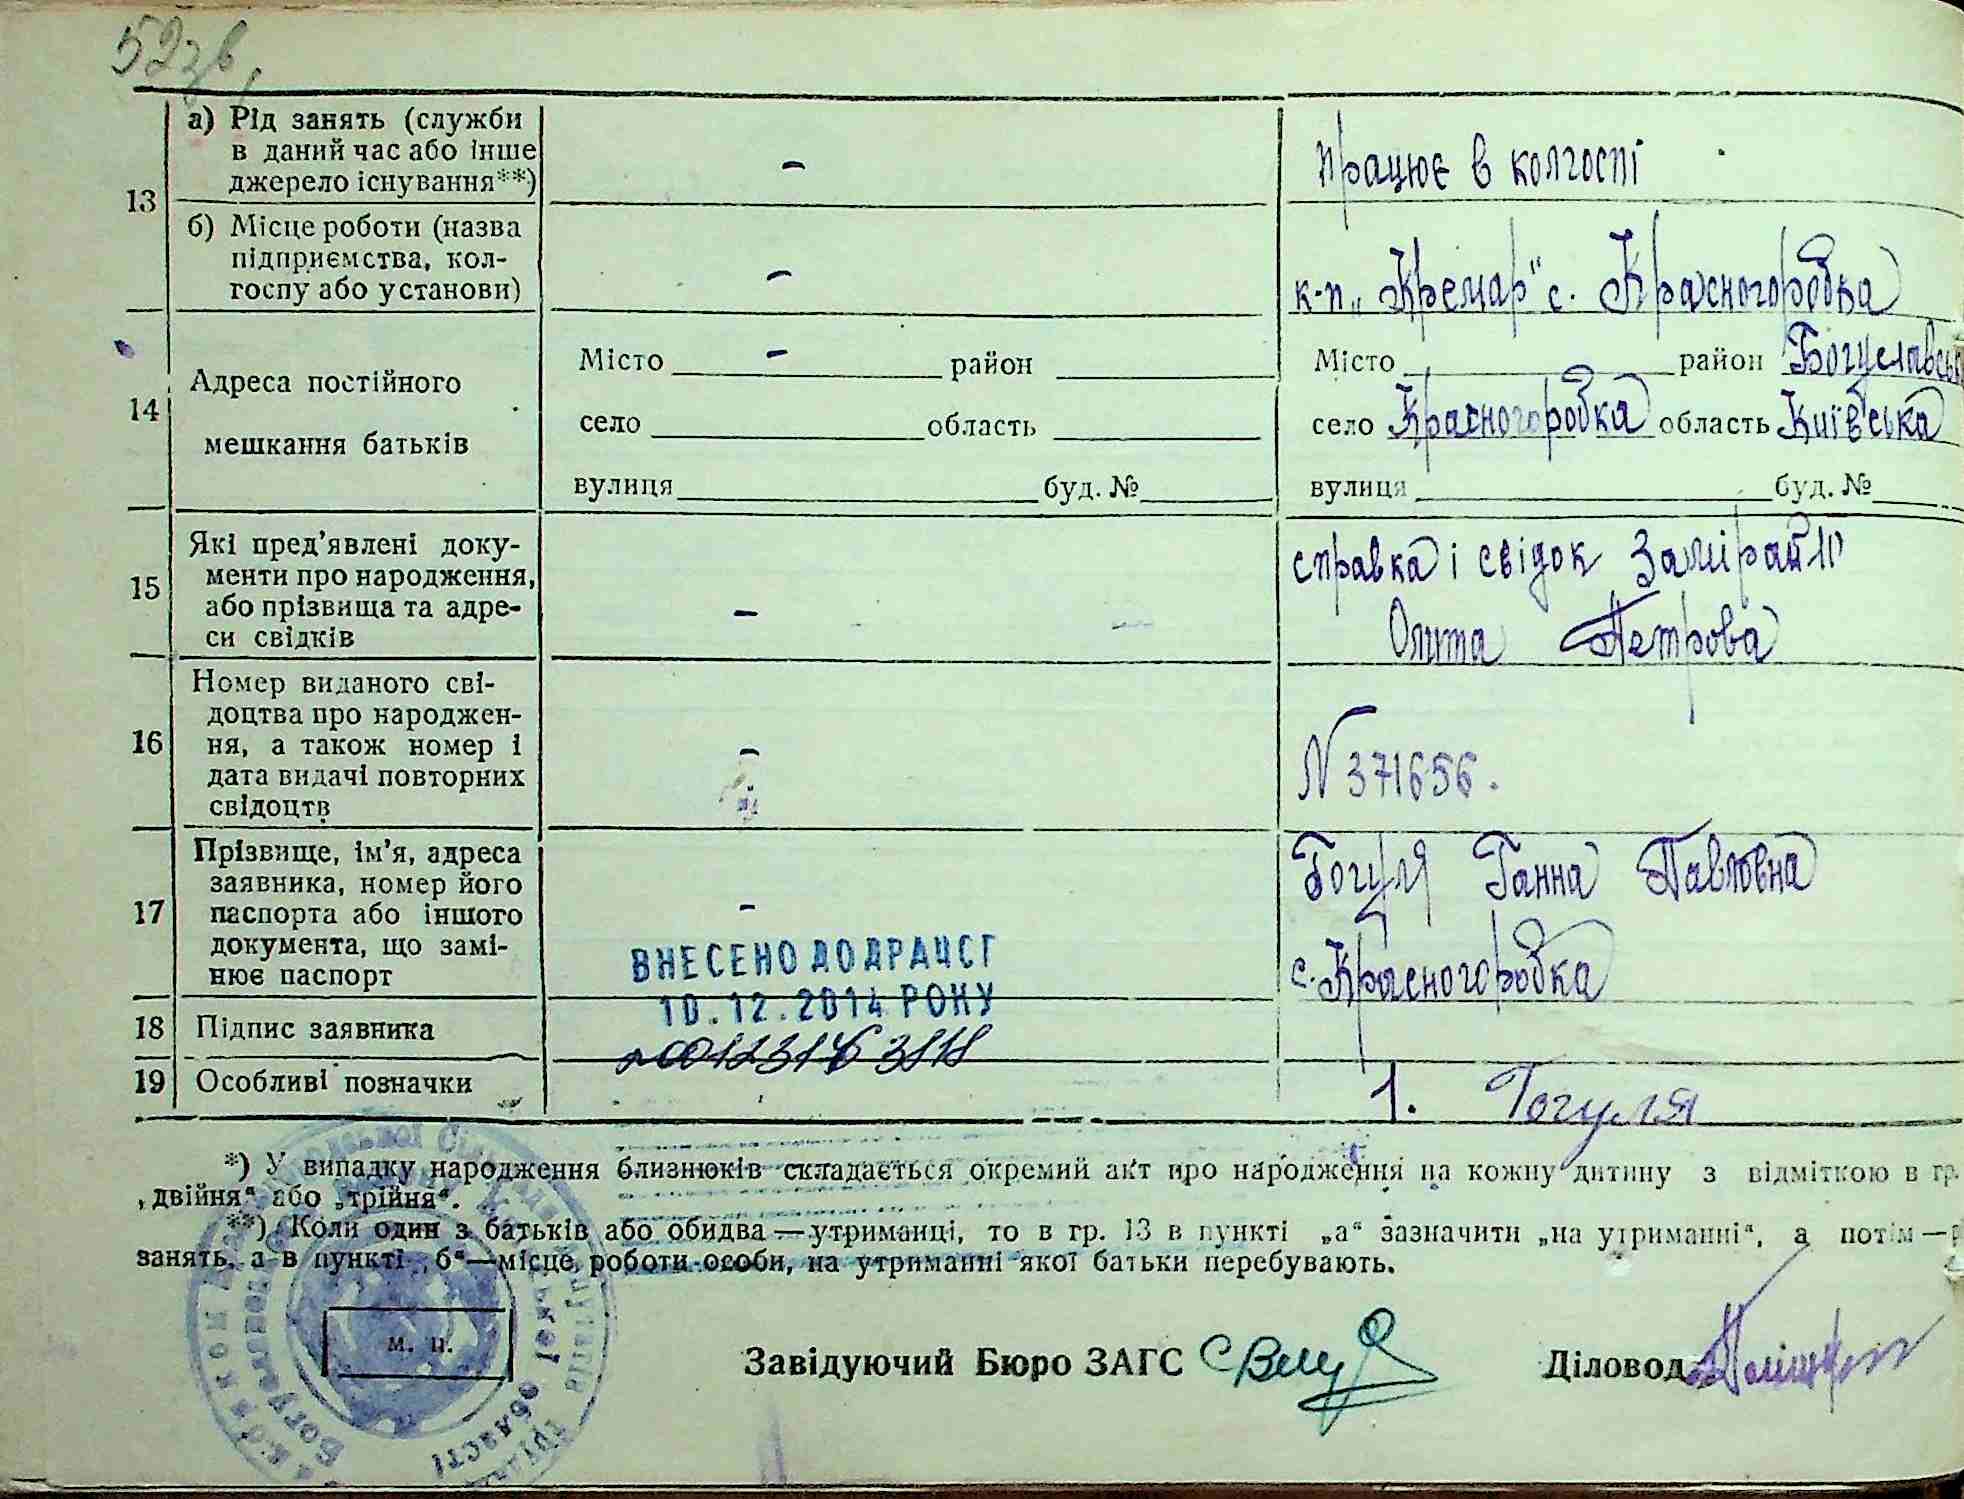 52зв.
13
а) Рід занять (служби
в даний час або інше
джерело існування**)
-
працює в колгоспі
б) Місце роботи (назва
підприємства, кол-
госпу або установи)
-
к-п „Кремар“ с. Красногоробка
14
Адреса постійного
мешкання батьків
Місто - район
село область
вулиця буд. №
Місто район Богуславськ
село Красногоробка область Київська
вулиця буд. №
15
Які пред’явлені доку-
менти про народження,
або прізвища та адре-
си свідків
-
справка і свідок
Петрова
16
Номер виданого сві-
доцтва про народжен-
ня, а також номер і
дата видачі повторних
свідоцтв
-
N 371656.
17
Прізвище, ім’я, адреса
заявника, номер його
паспорта або іншого
документа, що замі-
нює паспорт
-
Гогуля Ганна Павловна
с. Красногоробка
ВНЕСЕНО ДО ДРАЦСГ
10.12.2014 РОКУ
18
Підпис заявника
19
Особливі позначки
1. Гогуля
*) У випадку народження близнюків складається окремий акт про народження на кожну дитину з відміткою в гр.
„двійня“ або „трійня“.
**) Коли один з батьків або обидва — утриманці, то в гр. 13 в пункті „а“ зазначити „на утриманні“, а потім —
занять, а в пункті „б“ — місце роботи особи, на утриманні якої батьки перебувають.
м. п.
Завідуючий Бюро ЗАГС
Діловод